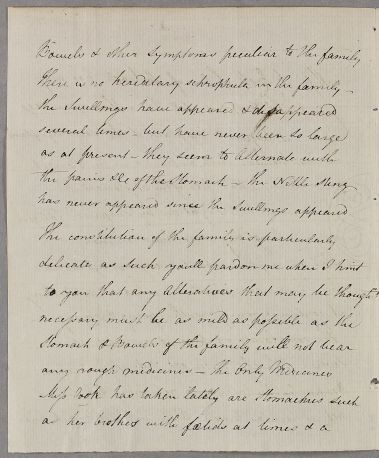 Bowels & other Symptoms peculiar to the family
There is no hereditary schrophula in the family -
the Swellings have appeared & disappeared
several times - but have never been so large
as at present - they seem to alternate with
the pains &c of the Stomach - the Nettle Stung
has never appeared since the Swellings appeared
The constitution of the family is particularly
delicate as such you'll pardon me when I hint
to you that any Alteratives that may be thought
necessary must be as mild as possible as the
Stomach & Bowels of the family will not bear
any rough medicines - the only Medicines
Miss has taken lately are Stomachics such
as her brothes with fœtids at times & a